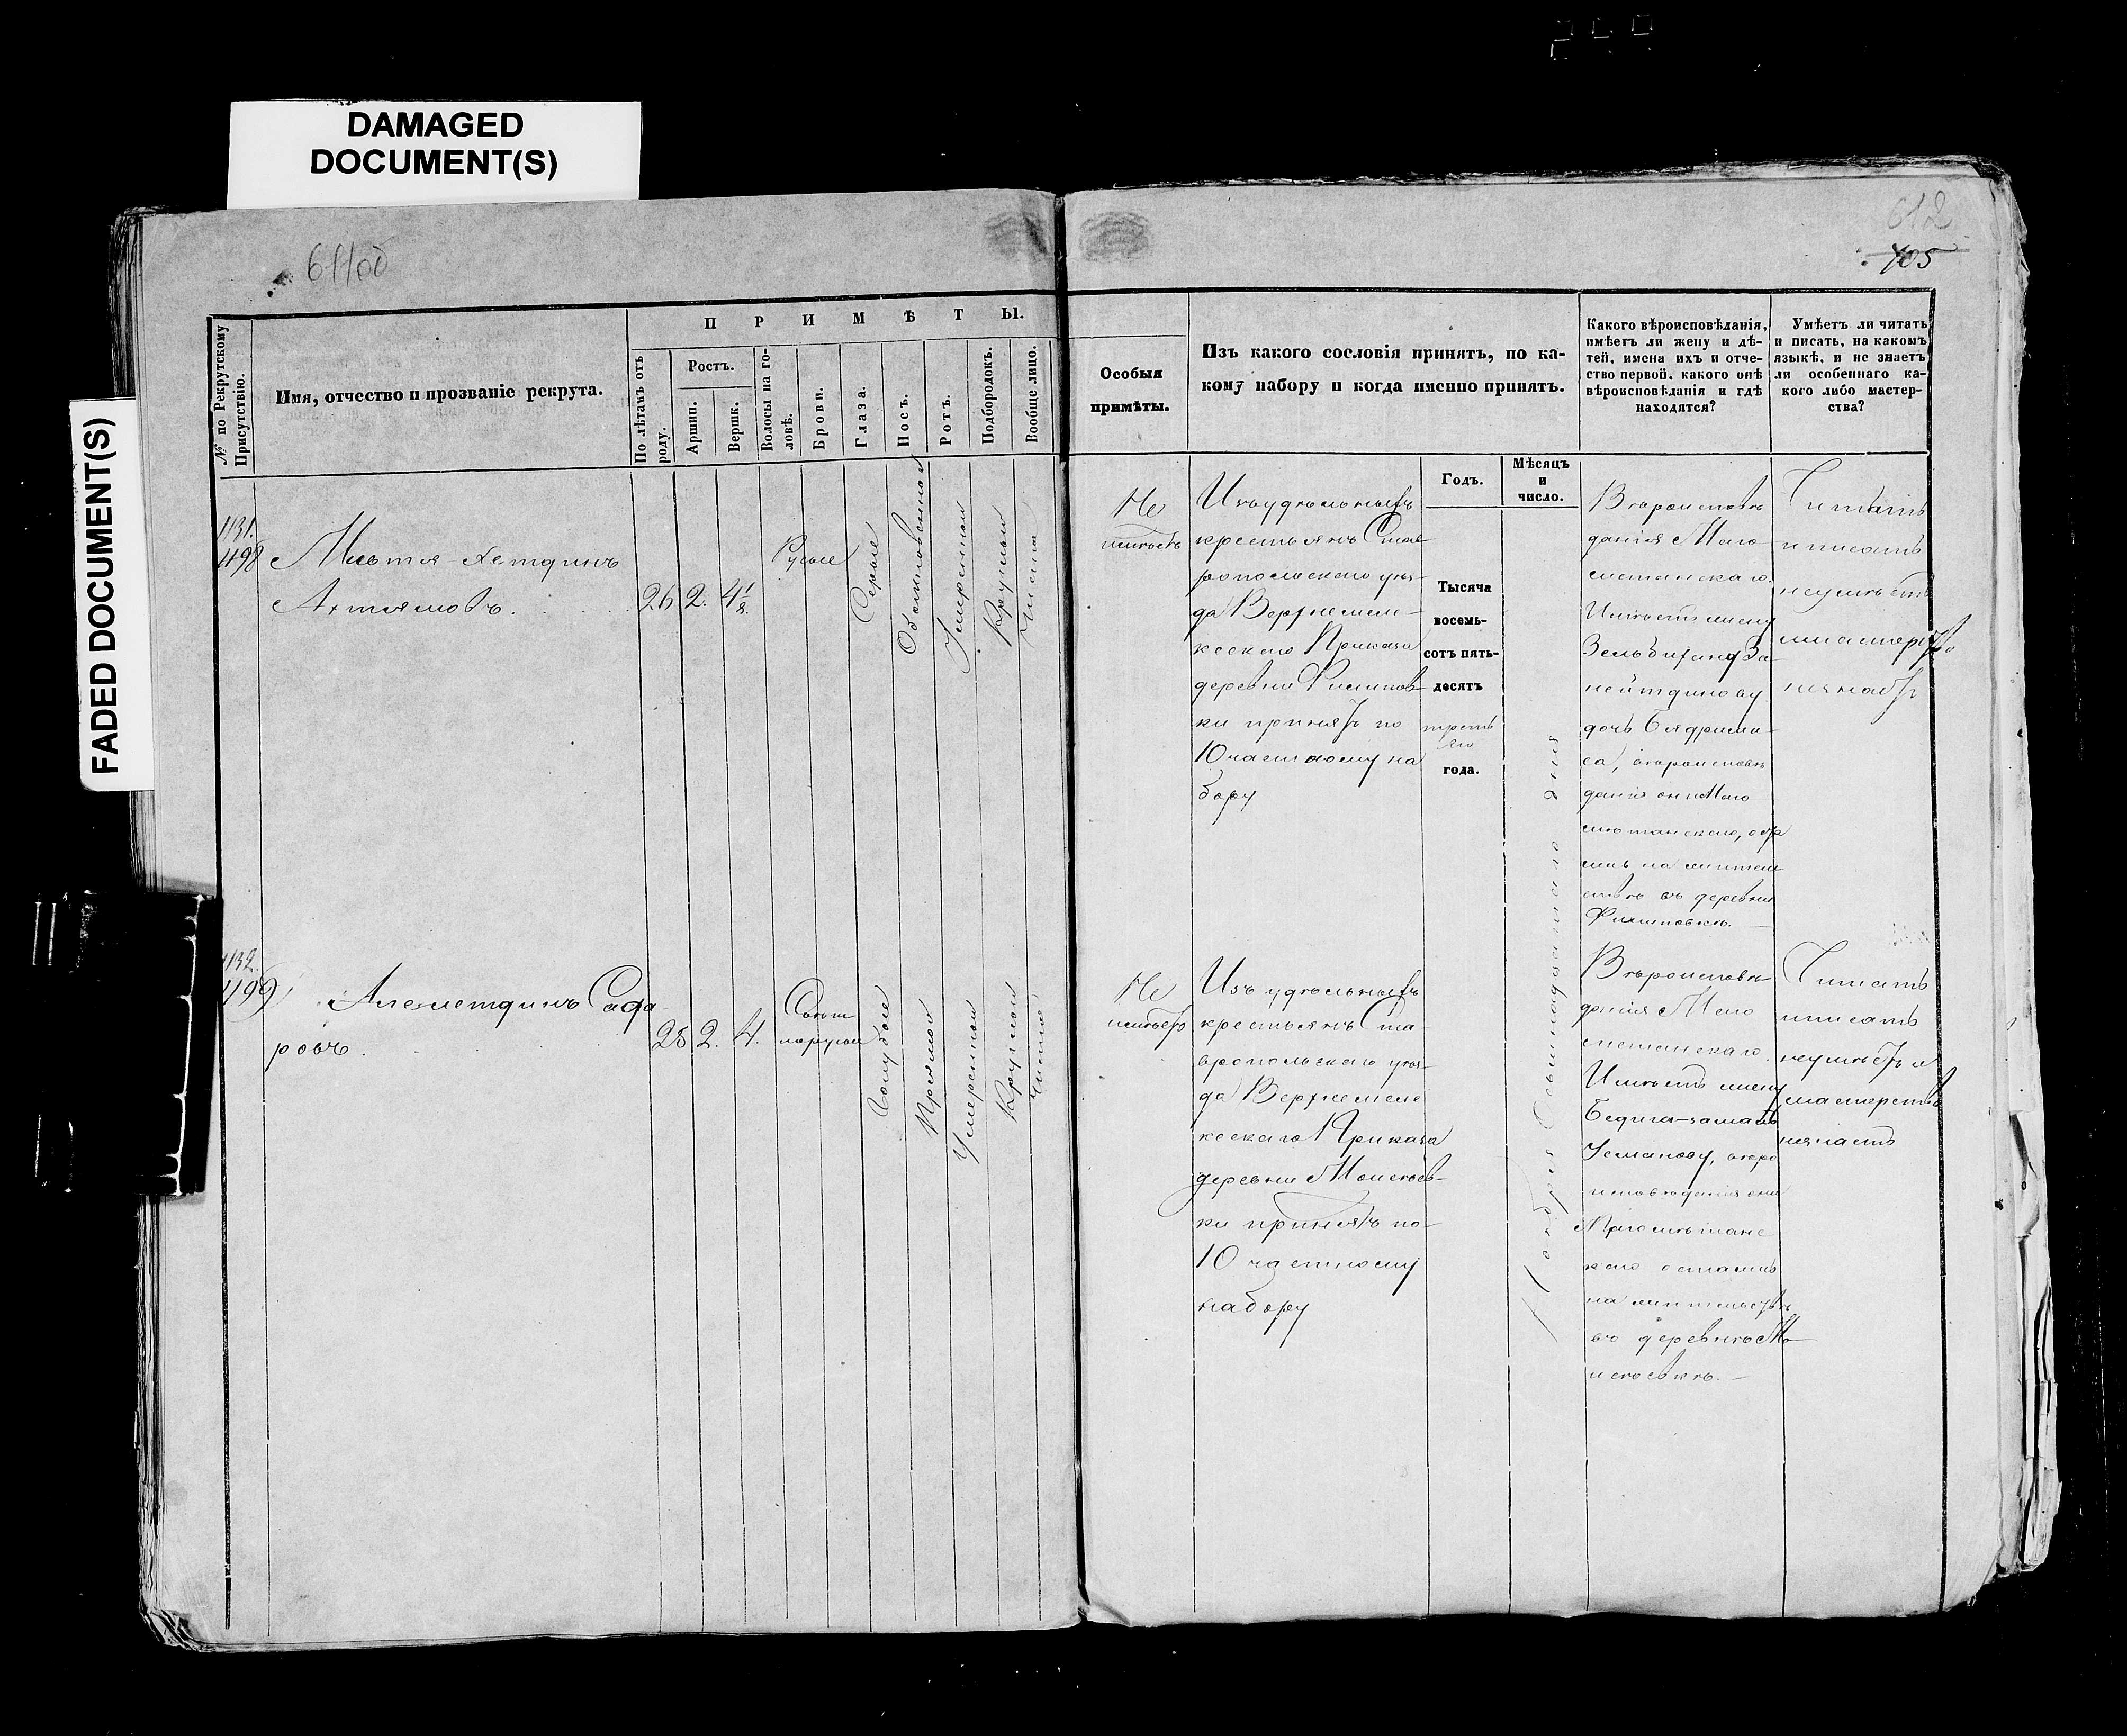 DAMAGED
DOCUMENT(S)
FADED DOCUMENT(S)
611об
612
705
№ по Рекрутскому
Присутствію.
Имя, отчество и прозваніе рекрута.
П Р И М Ѣ Т Ы.
По лѣтамъ отъ
роду.
Ростъ.
Аршин.
Вершк.
Волосы на го-
ловѣ.
Брови.
Глаза.
Носъ.
Ротъ.
Подбородокъ.
Вообще лицо.
Особыя
примѣты.
Изъ какого сословія принятъ, по ка-
кому набору и когда именно принятъ.
Годъ.
Мѣсяцъ
и
число.
Какого вѣроисповѣданія,
имѣетъ ли жену и дѣ-
тей, имена ихъ и отче-
ство первой, какого онѣ
вѣроисповѣданія и гдѣ
находятся?
Умѣетъ ли читать
и писать, на какомъ
языкѣ, и не знаетъ
ли особеннаго ка-
кого либо мастер-
ства?
1131.
1198
Ахтямовъ.
26 2. 4 1/8
Русые
Сѣрые
Обыкновенной
Умеренной
Круглой
Чистое
Не
имѣетъ
Изъ удѣльныхъ
крестьянъ Став
ропольскаго уѣз-
да Верхнемел-
кескаго Приказа
деревни Филипов-
ки принятъ по
10 частному на
бору
Тысяча
восемь-
сотъ пять-
десятъ
треть
яго
года.
Ноября Осьмнадцатаго дня
Вѣроисповѣ
данія Маго
метанскаго.
Имѣетъ жену
нейтдинову
дочь
са, вѣроисповѣ
данія они Маго
мѣтанскаго, оста
лись на житель
ствѣ въ деревни
Филиповкѣ.
Читать
и писать
неумѣетъ
и мастерство
незнаетъ
1132.
1199
Алемлетдинъ Сафа
ровъ.
28 2. 4.
Свѣт
лорусые
Голубые
Прямой
Умеренной
Круглой
Чистое
Не
имѣетъ
Изъ удѣльныхъ
крестьянъ Ста
вропольскаго уѣз-
да Верхнемел
кескаго Приказа
деревни Моисѣев-
ки принятъ по-
10 частному
набору
Вѣроисповѣ
данія Маго
метанскаго.
Имѣетъ жену
Бедига-замалъ
Усманову, вѣро
исповѣданія они
Магомѣтанс
каго остались
на жительствѣ
въ деревнѣ Мо
исѣевкѣ.
Читать
и писать
неумѣетъ и
мастерства
незнаетъ